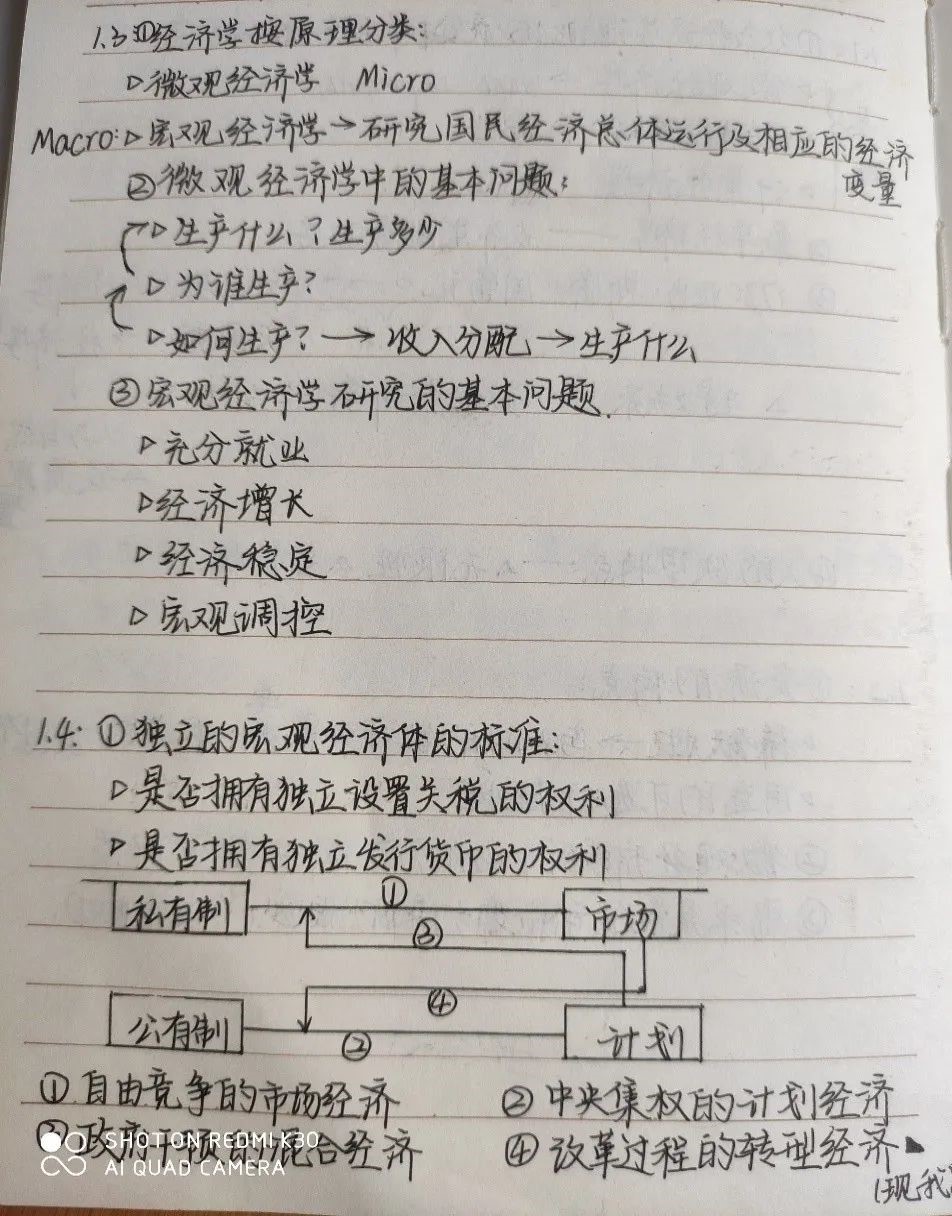 1.3①经济学按原理分类:
▷微观经济学 Micro
Macro:▷宏观经济学→研究国民经济总体运行及相应的经济
变量
②微观经济学中的基本问题:
▷生产什么?生产多少
▷为谁生产?
▷如何生产?→收入分配→生产什么
③宏观经济学研究的基本问题.
▷充分就业
▷经济增长
▷经济稳定
▷宏观调控
1.4:①独立的宏观经济体的标准:
▷是否拥有独立设置关税的权利
▷是否拥有独立发行货币的权利
私有制 ① 市场
③
④
公有制 ② 计划
①自由竞争的市场经济 ②中央集权的计划经济
③政府干预的混合经济 ④改革过程的转型经济
(现我
SHOT ON REDMI K30
AI QUAD CAMERA